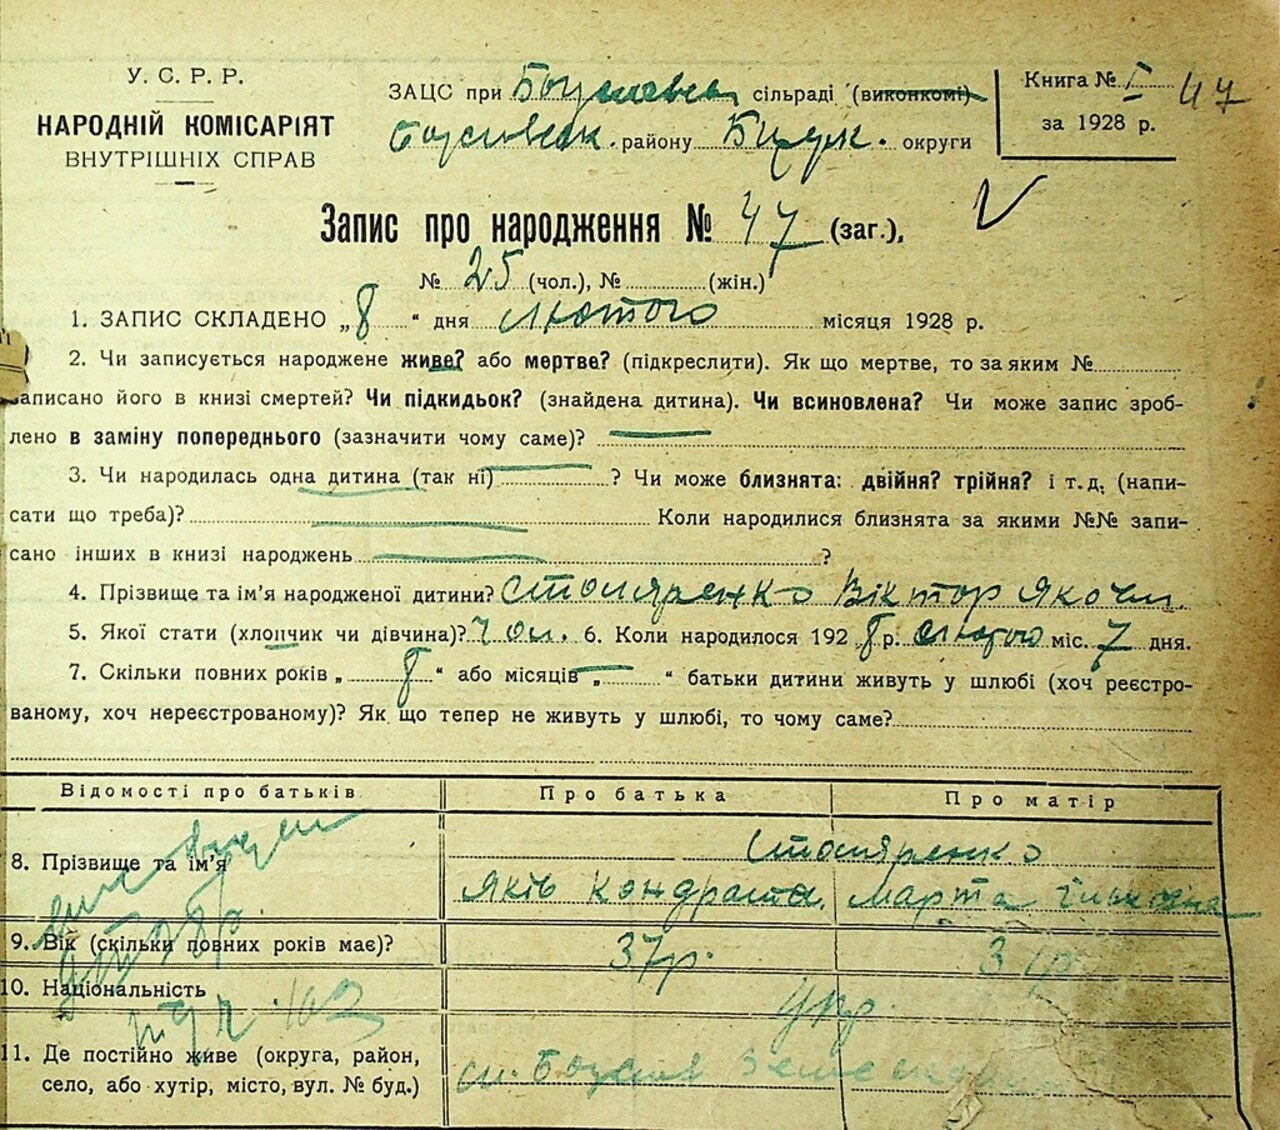 У. С. Р. Р.
НАРОДНІЙ КОМІСАРІЯТ
ВНУТРІШНІХ СПРАВ
ЗАЦС при Богуславськ сільраді (виконкомі)
Богуславськ. району округи
Книга № I 47
за 1928 р.
Запис про народження № 47 (заг.),
№ 25 (чол.), № (жін.)
1. ЗАПИС СКЛАДЕНО „8“ дня лютого місяця 1928 р.
2. Чи записується народжене живе? або мертве? (підкреслити). Як що мертве, то за яким №
записано його в книзі смертей? Чи підкидьок? (знайдена дитина). Чи всиновлена? Чи може запис зроб-
лено в заміну попереднього (зазначити чому саме)?
3. Чи народилась одна дитина (так ні) ? Чи може близнята: двійня? трійня? і т.д. (напи-
сати що треба)? Коли народилися близнята за якими №№ запи-
сано інших в книзі народжень ?
4. Прізвище та ім'я народженої дитини? Столяренко Віктор Якочл.
5. Якої стати (хлопчик чи дівчина)? чол. 6. Коли народилося 1928 р. лютого міс. 7 дня.
7. Скільки повних років „8“ або місяців „ “ батьки дитини живуть у шлюбі (хоч реєстро-
ваному, хоч нереєстрованому)? Як що тепер не живуть у шлюбі, то чому саме?
Відомості про батьків Про батька Про матір
8. Прізвище та ім'я Столяренко
Яків Кондратов. Марта
9. Вік (скільки повних років має)? 37 р.
10. Національність укр.
11. Де постійно живе (округа, район,
село, або хутір, місто, вул. № буд.) м. Богуслав